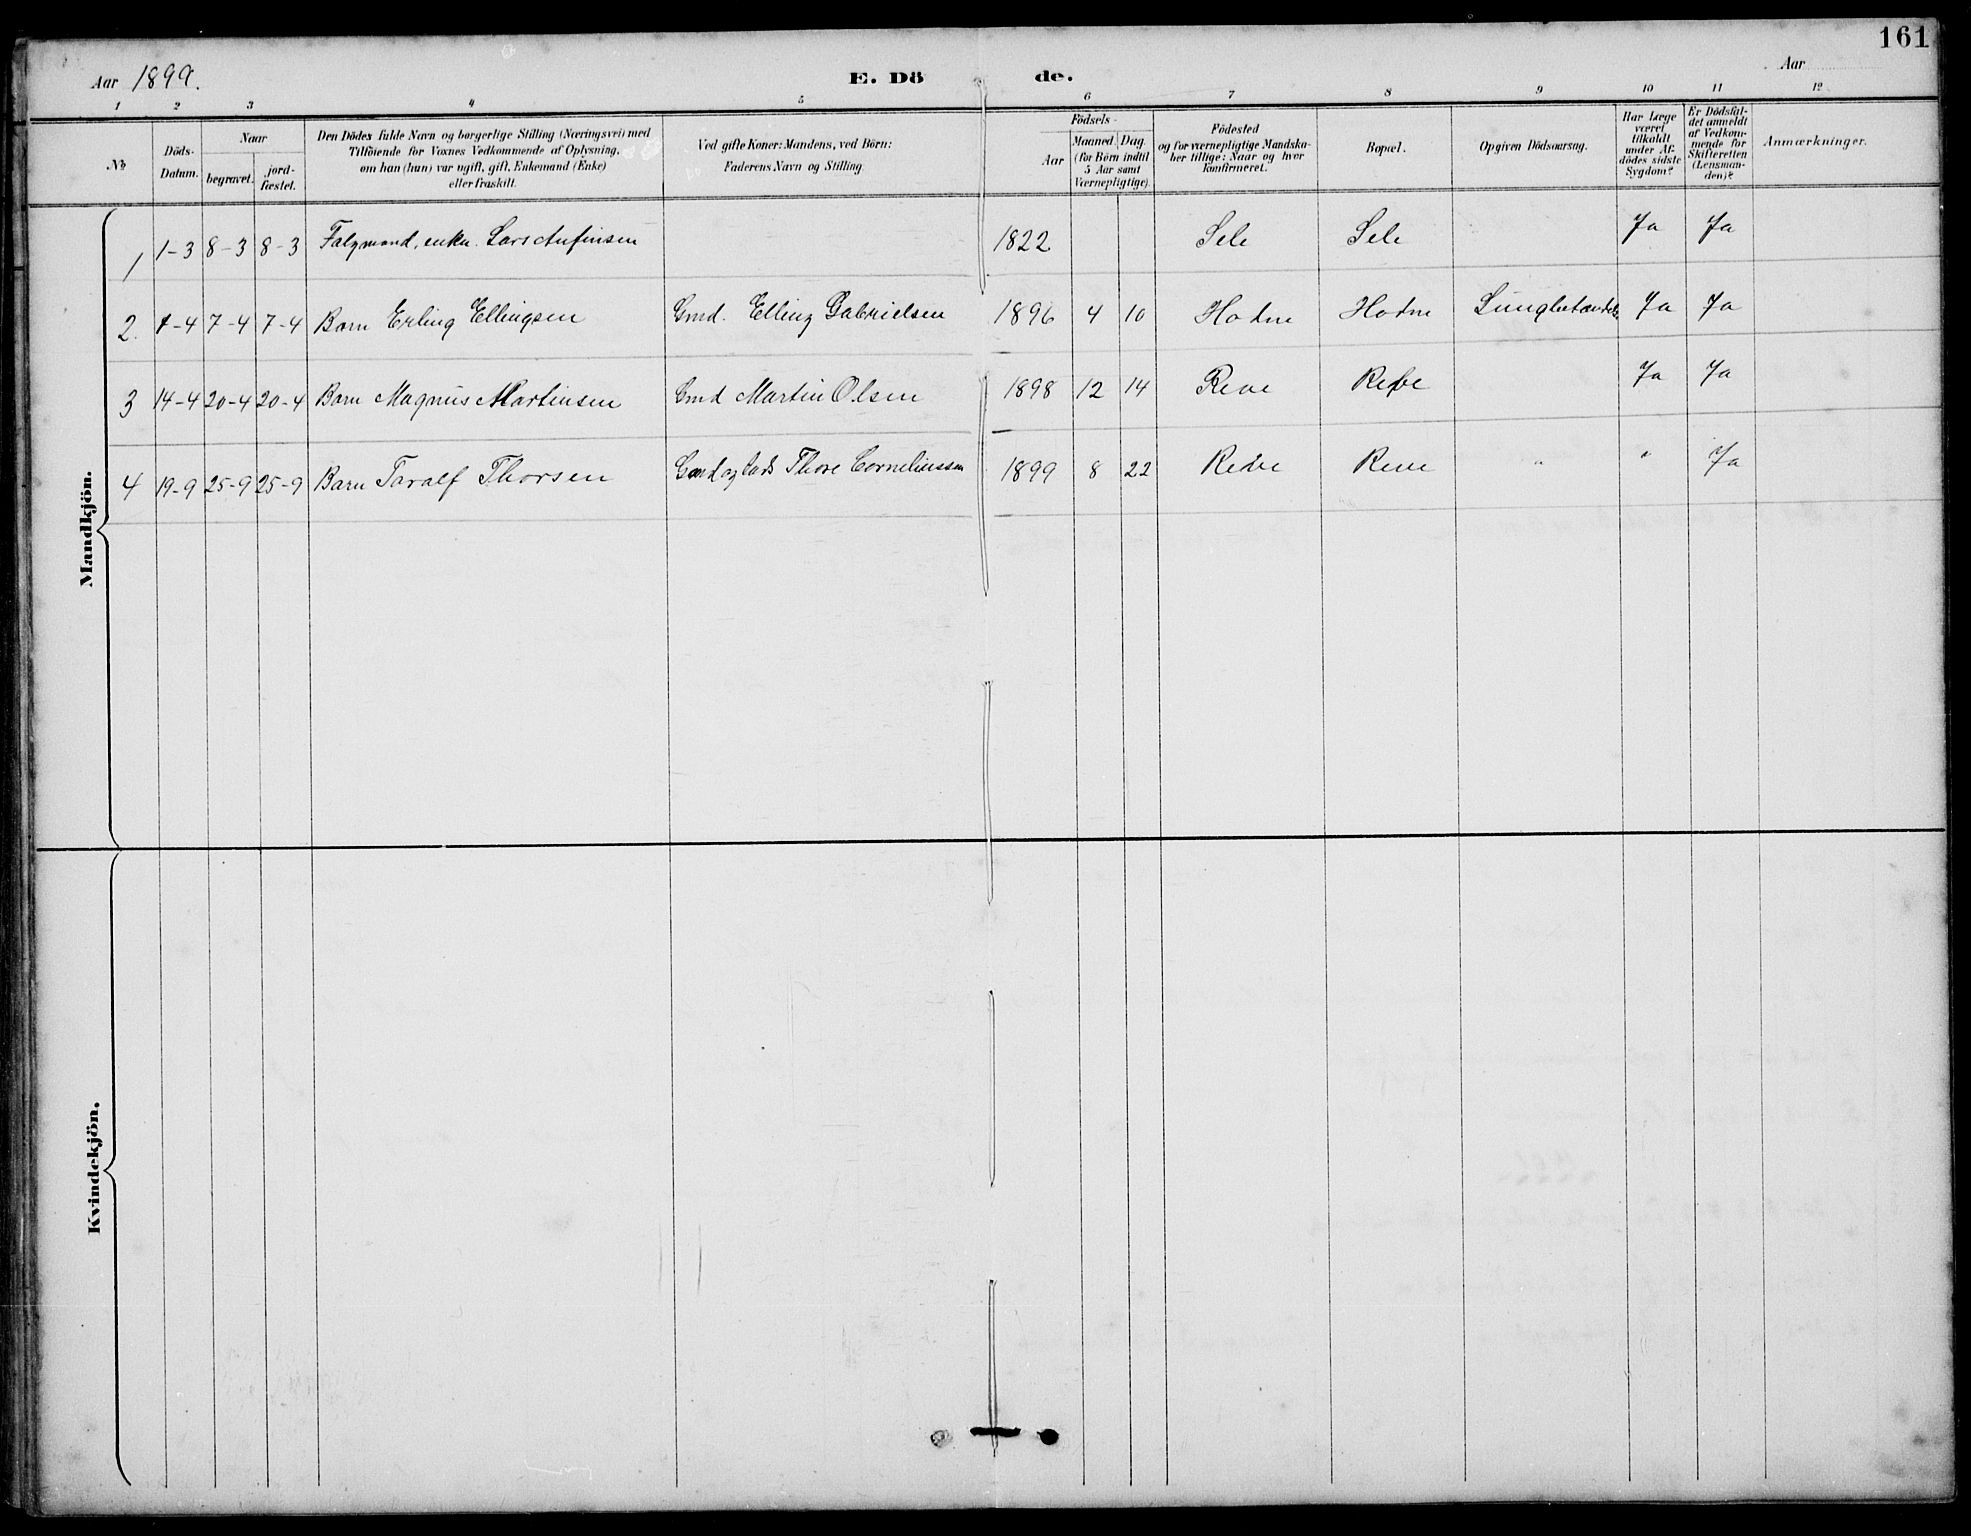 161
Aar 1899.
E. Dö de.
Aar
1 2 3 4 5 6 7 8 9 10 11 12
№
Döds-
Datum.
Naar
begravet.
jord-
fæstet.
Den Dödes fulde Navn og borgerlige Stilling (Næringsvei) med
Tilföiende for Voxnes Vedkommende af Oplysning,
om han (hun) var ugift, gift, Enkemand (Enke)
eller fraskilt.
Ved gifte Koner: Mandens, ved Börn:
Faderens Navn og Stilling.
Födsels-
Aar
Maaned. Dag.
(for Börn indtil
5 Aar samt
Værnepligtige).
Födested
og for værnepligtige Mandska-
ber tillige: Naar og hvor
konfirmeret.
Bopæl.
Opgiven Dödsaarsag.
Har Læge
været
tilkaldt
under Af-
dödes sidste
Sygdom?
Er Dödsfal-
det anmeldt
af Vedkom-
mende for
Skifteretten
(Lensman-
den)?
Anmærkninger.
Mandkjön.
1 1-3 8-3 8-3 Lars Aufinsen 1822 Sele Sele Ja Ja
2. 1-4 7-4 7-4 Barn Erling Ellingsen Gmd. Elling Gabrielsen 1896 4 10 Hodne Hodne Lungbetændelse Ja Ja
3 14-4 20-4 20-4 Barn Magnus Martinsen Gmd Martin Olsen 1898 12 14 Reve Reve Ja Ja
4 19-9 25-9 25-9 Barn Taralf Thorsen Gmd og Lods Thore Corneliussen 1899 8 22 Reve Reve " " Ja
Kvindekjön.